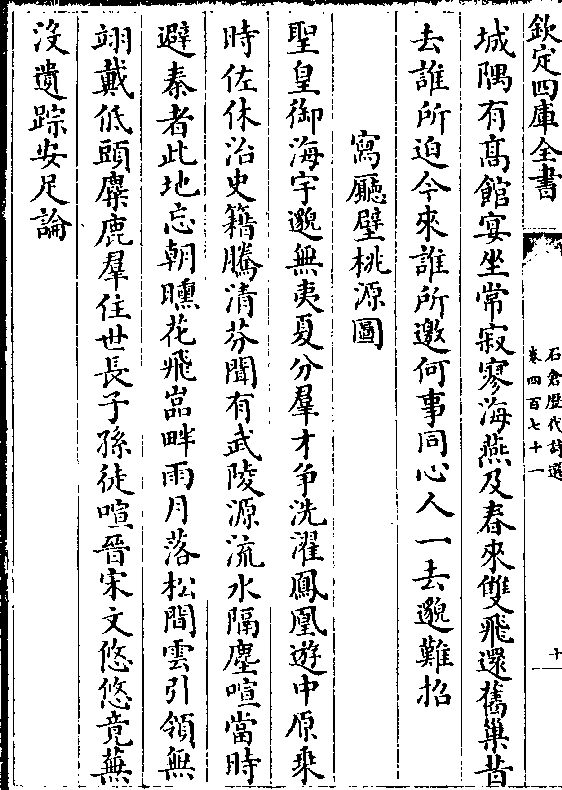 欽定四庫全書
石倉歷代詩選
卷四百七十一
十一
城隅有髙館宴坐常寂寥海燕及春來雙飛還舊巢昔
去誰所迫今來誰所邀何事同心人一去邈難招
寫廳壁桃源圖
聖皇御海宇邈無夷夏分羣才争洗濯鳳凰遊中原乘
時佐休治史籍騰清芬聞有武陵源流水隔塵喧當時
避秦者此地忘朝曛花飛嵓畔雨月落松間雲引領無
翊戴低頭麋鹿羣住世長子孫徒喧晉宋文悠悠竟蕪
沒遺踪安足論